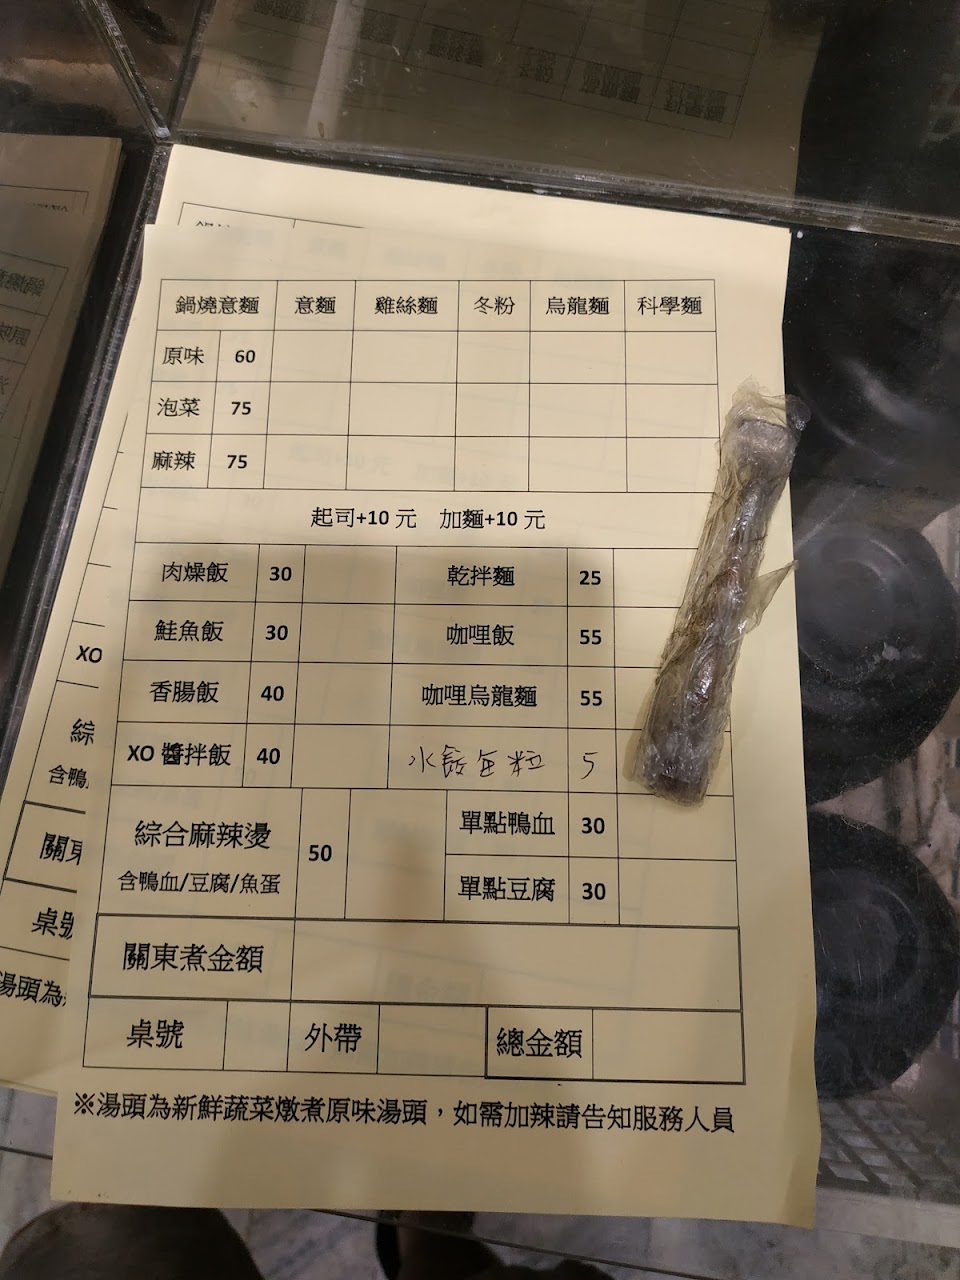 鍋燒意麵 意麵 雞絲麵 冬粉 烏龍麵 科學麵
原味 60
泡菜 75
麻辣 75
起司+10元 加麵+10元
肉燥飯 30 乾拌麵 25
鮭魚飯 30 咖哩飯 55
香腸飯 40 咖哩烏龍麵 55
XO 醬拌飯 40 水餃每粒 5
綜合麻辣燙 50 單點鴨血 30
含鴨血/豆腐/魚蛋 單點豆腐 30
關東煮金額
桌號 外帶 總金額
※湯頭為新鮮蔬菜燉煮原味湯頭，如需加辣請告知服務人員
XO
綜
含鴨
關東
桌號
湯頭為